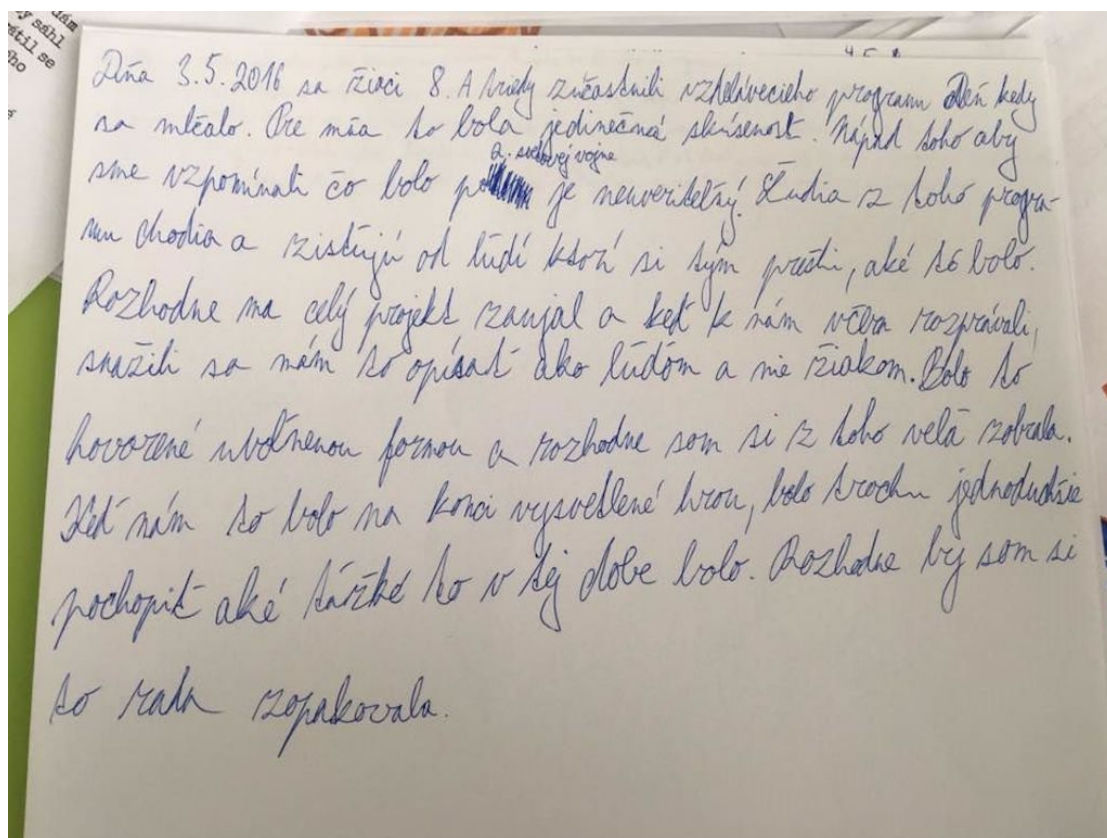 dám
y sáhl
átil se
ho
Dňa 3.5.2016 sa žiaci 8. A triedy zúčastnili vzdelávecieho programu Deň kedy
sa mlčalo. Pre mňa to bola jedinečná skúsenosť. Nápad toho aby
sme vzpomínali čo bolo po 2. svetovej vojne je neuveriteľný. Ľudia z toho progra-
mu chodia a zisťujú od ľudí ktorí si tým prešli, aké to bolo.
Rozhodne ma celý projekt zaujal a keď k nám včera rozprávali,
snažili sa nám to opísať ako ľuďom a nie žiakom. Bolo to
hovorené uvoľnenou formou a rozhodne som si z toho veľa zobrala.
Keď nám to bolo na konci vysvetlené hrou, bolo trochu jednoduchšie
pochopiť aké ťažké to v tej dobe bolo. Rozhodne by som si
to rada zopakovala.